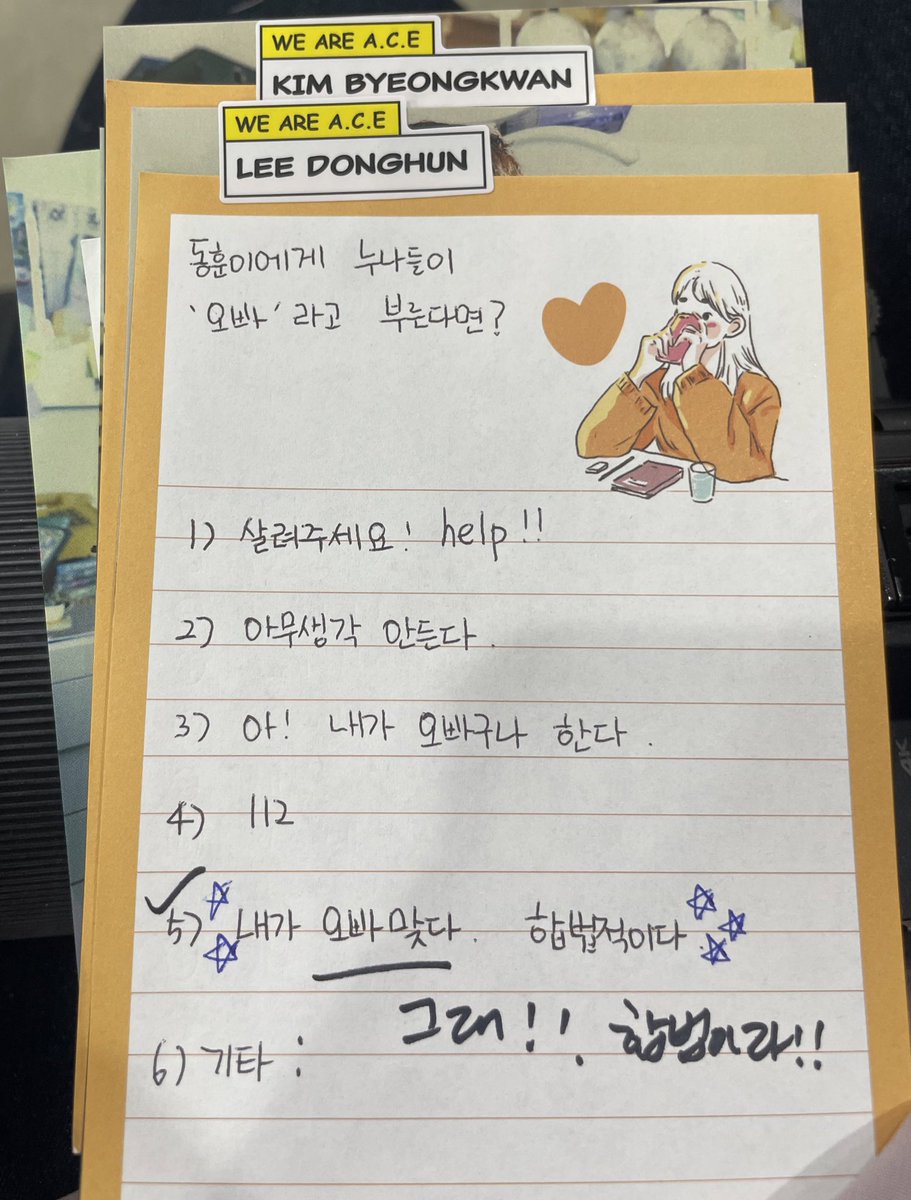 WE ARE A.C.E
KIM BYEONGKWAN
WE ARE A.C.E
LEE DONGHUN
동훈이에게 누나들이
'오빠'라고 부른다면?
1) 살려주세요! help!!
2) 아무생각 안든다.
3) 아! 내가 오빠구나 한다.
4) 112
5) 내가 오빠맞다. 합법적이다
그래!! 합법이라!!
6) 기타 :